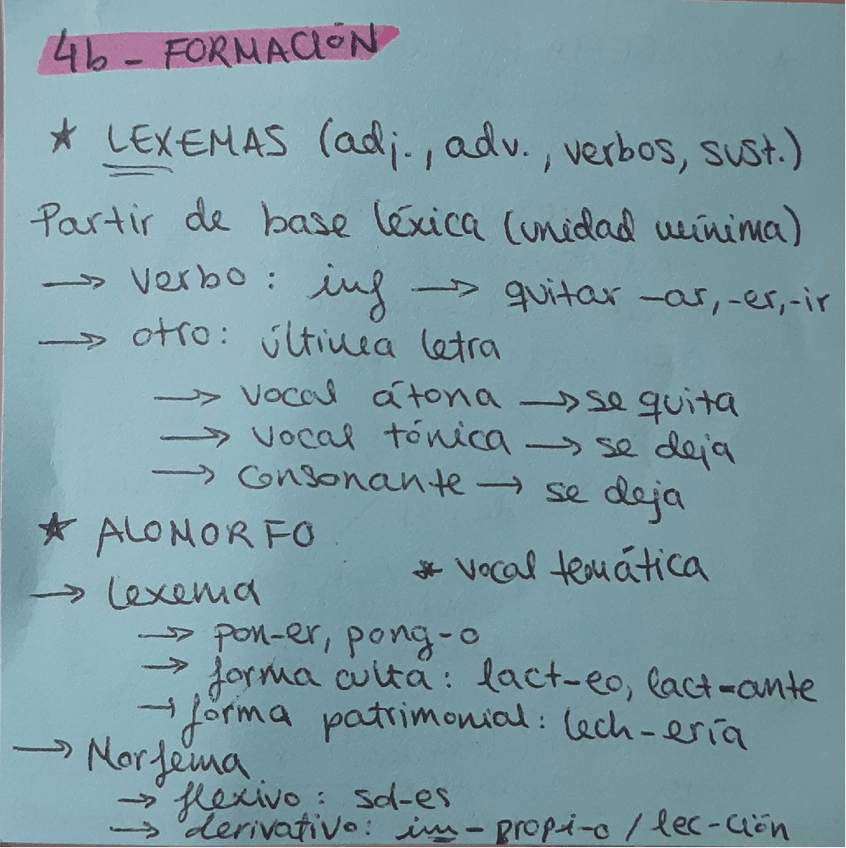 4b - FORMACIÓN
* LEXEMAS (adj., adv., verbos, sust.)
Partir de base léxica (unidad mínima)
→ verbo: inf → quitar -ar, -er, -ir
→ otro: última letra
→ vocal átona → se quita
→ vocal tónica → se deja
→ consonante → se deja
* ALOMORFO
* vocal temática
→ Lexema
→ pon-er, pong-o
→ forma culta: lact-eo, lact-ante
→ forma patrimonial: lech-ería
→ Morfema
→ flexivo: sol-es
→ derivativo: im-propi-o / lec-ción